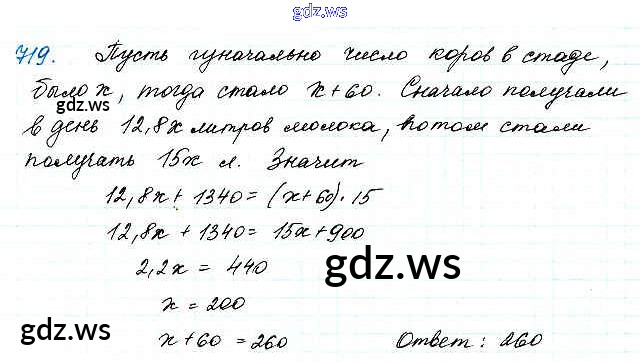 gdz.ws
719. Пусть изначально число коров в стаде,
было x, тогда стало x+60. Сначало получали
gdz.ws
в день 12,8x литров молока, потом стали
получать 15x л. Значит
12,8x + 1340 = (x+60)·15
12,8x + 1340 = 15x+900
2,2x = 440
gdz.ws
x = 200
gdz.ws
x+60 = 260 Ответ: 260